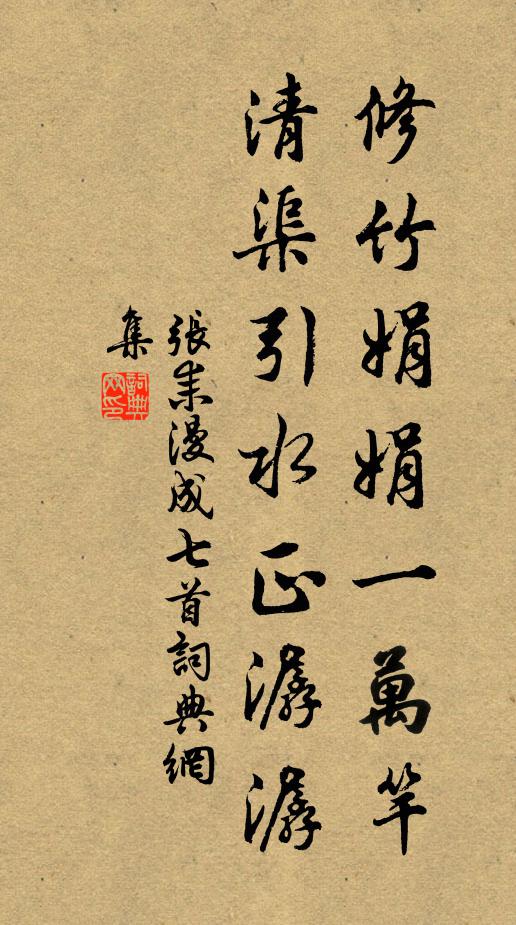 修竹娟娟一萬竿
清渠引水正潺潺
張耒漫成七首詞典網
集
詞典網印